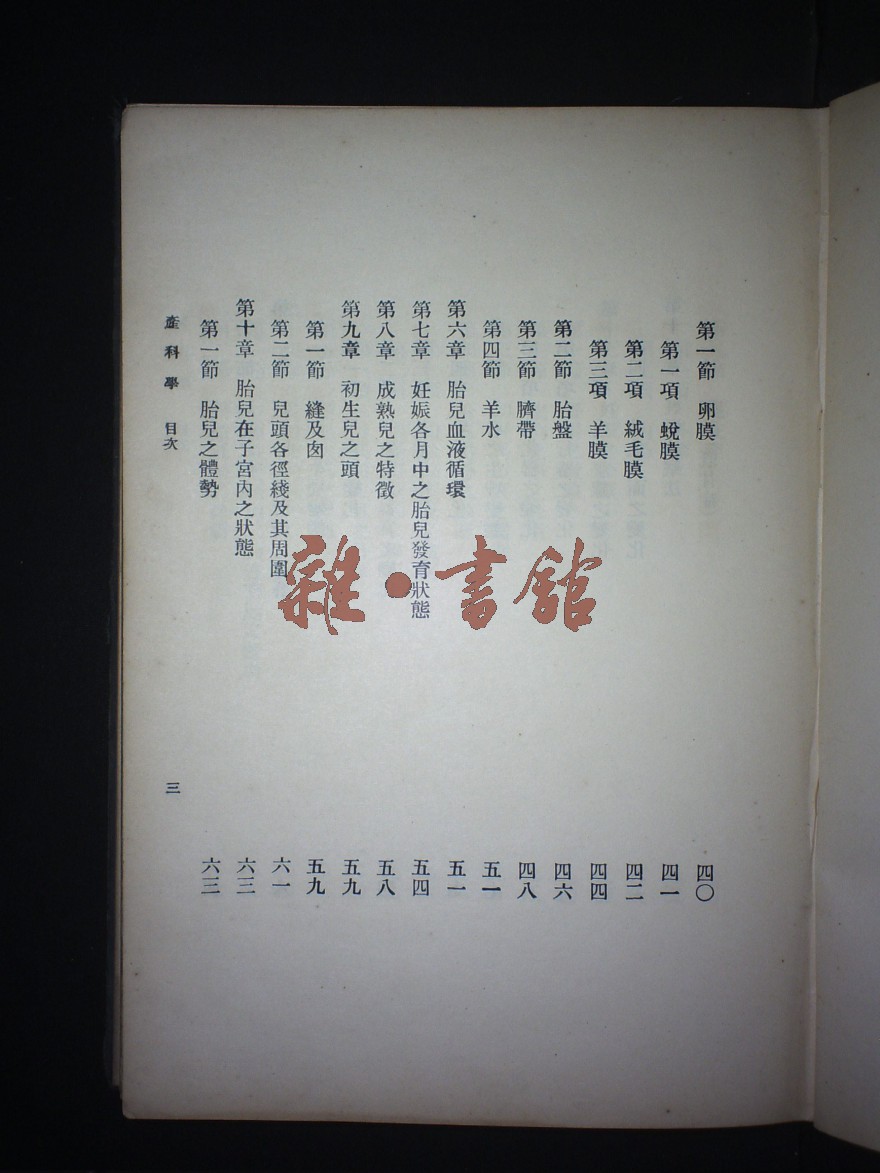 第一節 卵膜 四〇
第一項 蛻膜 四一
第二項 絨毛膜 四二
第三項 羊膜 四四
第二節 胎盤 四六
第三節 臍帶 四八
第四節 羊水 五一
第六章 胎兒血液循環 五一
第七章 妊娠各月中之胎兒發育狀態 五四
第八章 成熟兒之特徵 五八
第九章 初生兒之頭 五九
第一節 縫及囟 五九
第二節 兒頭各徑綫及其周圍 六一
第十章 胎兒在子宮內之狀態 六三
第一節 胎兒之體勢 六三
產科學 目次 三
雜·書館